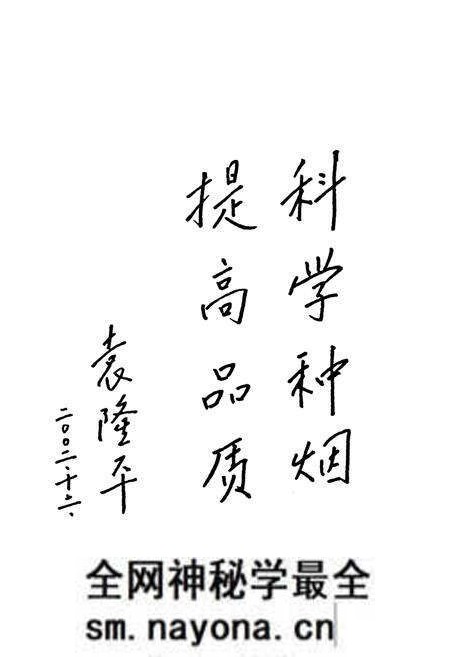 科学种烟
提高品质
袁隆平
二〇〇二、十六、
全网神秘学最全
sm.nayona.cn